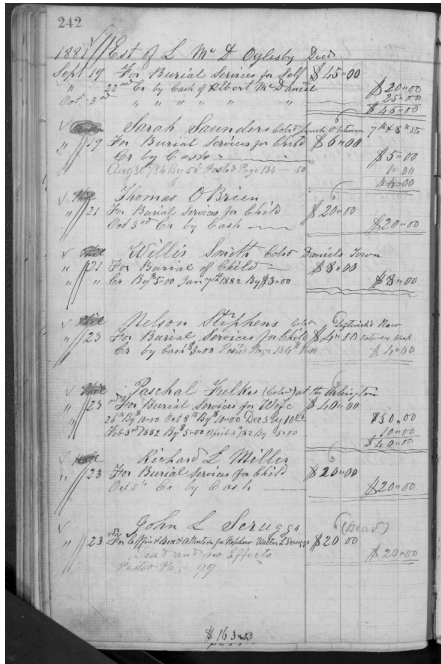 242
1881 Est of L Mc D Oglesby Decd
Sept 19 For Burial Services for Self $45.00
" 22nd Cr by Cash of Albert McDaniel $20.00
Oct 3rd " " " " " 25.00
$45.00
Sarah Saunders Cold 7th & 8th Sts
" 19 For Burial Services for Child $6.00
Cr by Cash $5.00
Aug 30 Posted Page 134 50
Thomas O'Brien
" 21 For Burial Services for Child $20.00
Oct 3rd Cr by Cash $20.00
Willis Smith Cold Daniels Town
" 21 For Burial of Child $8.00
" Cr By $5.00 Jany 7th 1882 By $3.00 $8.00
Nelson Stephens Row
" 23 For Burial Services for Child $4.00
Cr by Cash $3.00 Page 134 $4.00
Paschal Fulkes (Colord) at the Arlington
" 23 For Burial Services for Wife $40.00
26th By $10.00 Oct 8th By $10.00 Dec 3 by 10.00 $30.00
Feb 3rd 1882 By $5.00 April By $5.00 10.00
$40.00
Richard L Miller
" 23 For Burial Services for Child $20.00
Oct Cr by Cash $20.00
John L Scruggs (Dead)
" 23 For Coffin & Box & Attention for Nephew Walter L Scruggs $20.00
Dead and no Effects $20.00
$163.00